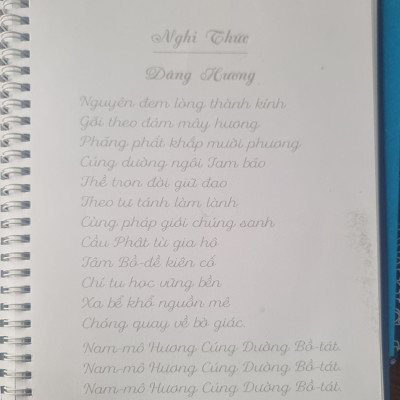 Nghi Thức
Dâng Hương
Nguyện đem lòng thành kính
Gởi theo đám mây hương
Phảng phất khắp mười phương
Cúng dường ngôi Tam bảo
Thề trọn đời giữ đạo
Theo tự tánh làm lành
Cùng pháp giới chúng sanh
Cầu Phật từ gia hộ
Tâm Bồ-đề kiên cố
Chí tu học vững bền
Xa bể khổ nguồn mê
Chóng quay về bờ giác.
Nam-mô Hương Cúng Dường Bồ-tát.
Nam-mô Hương Cúng Dường Bồ-tát.
Nam-mô Hương Cúng Dường Bồ-tát.